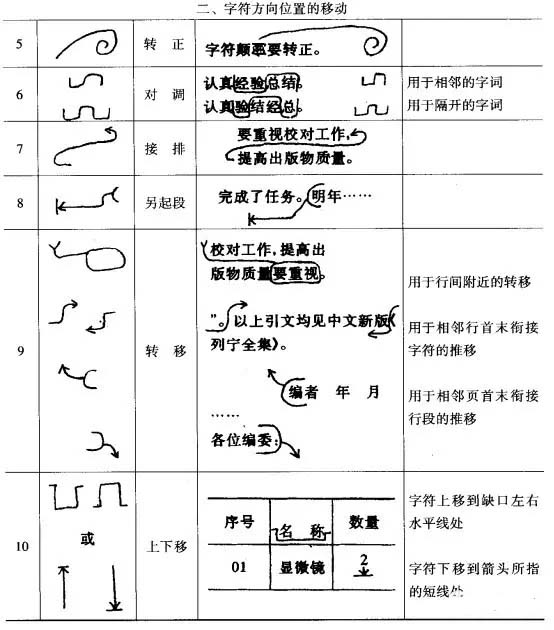 二、字符方向位置的移动
5 转 正 字符颠要转正。
6 对 调 认真经验总结。 用于相邻的字词
认真验结经总。 用于隔开的字词
7 接 排 要重视校对工作，
提高出版物质量。
8 另起段 完成了任务。明年……
9 转 移 校对工作，提高出
版物质量要重视。
用于行间附近的转移
”。以上引文均见中文新版《
列宁全集》。
用于相邻行首末衔接
字符的推移
编者 年 月
……
各位编委：
用于相邻页首末衔接
行段的推移
10 或 上下移
序号 名 称 数量
01 显微镜 2
字符上移到缺口左右
水平线处
字符下移到箭头所指
的短线处